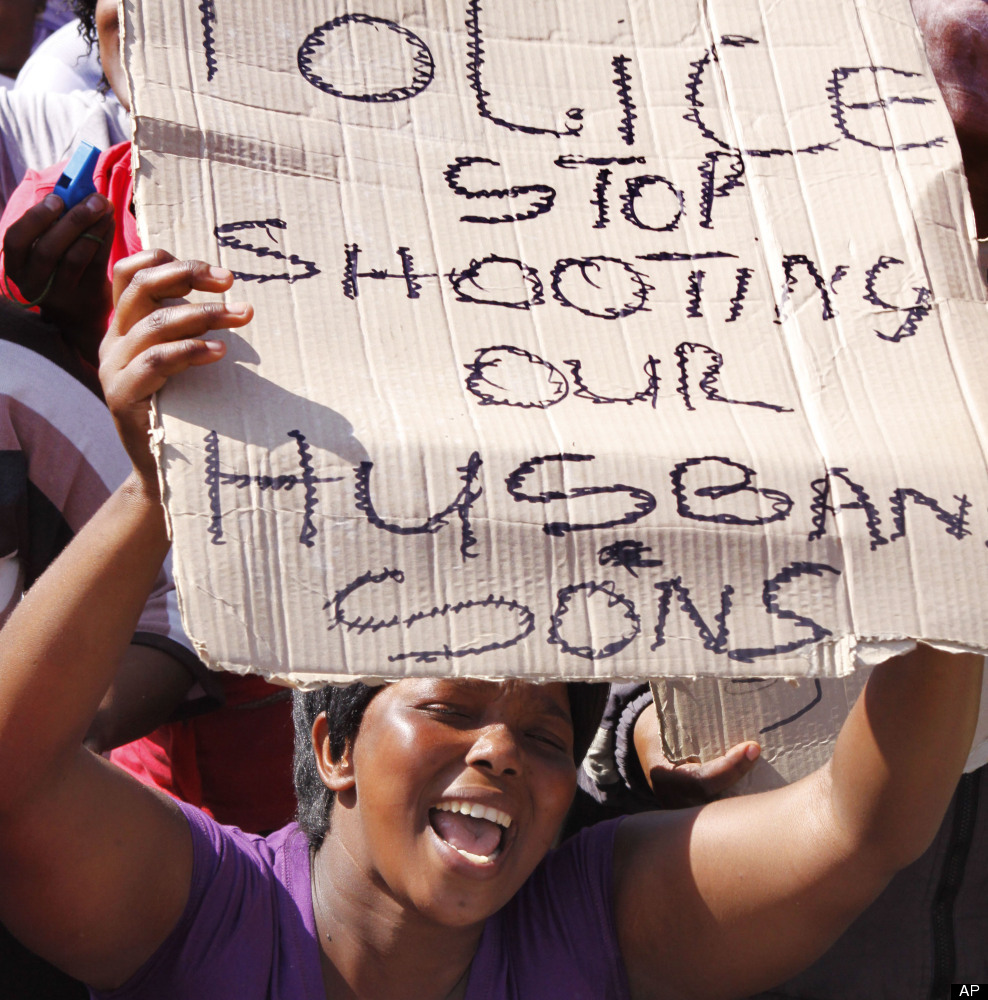 POLICE
STOP
SHOOTING
OUR
HUSBAN
SONS
AP